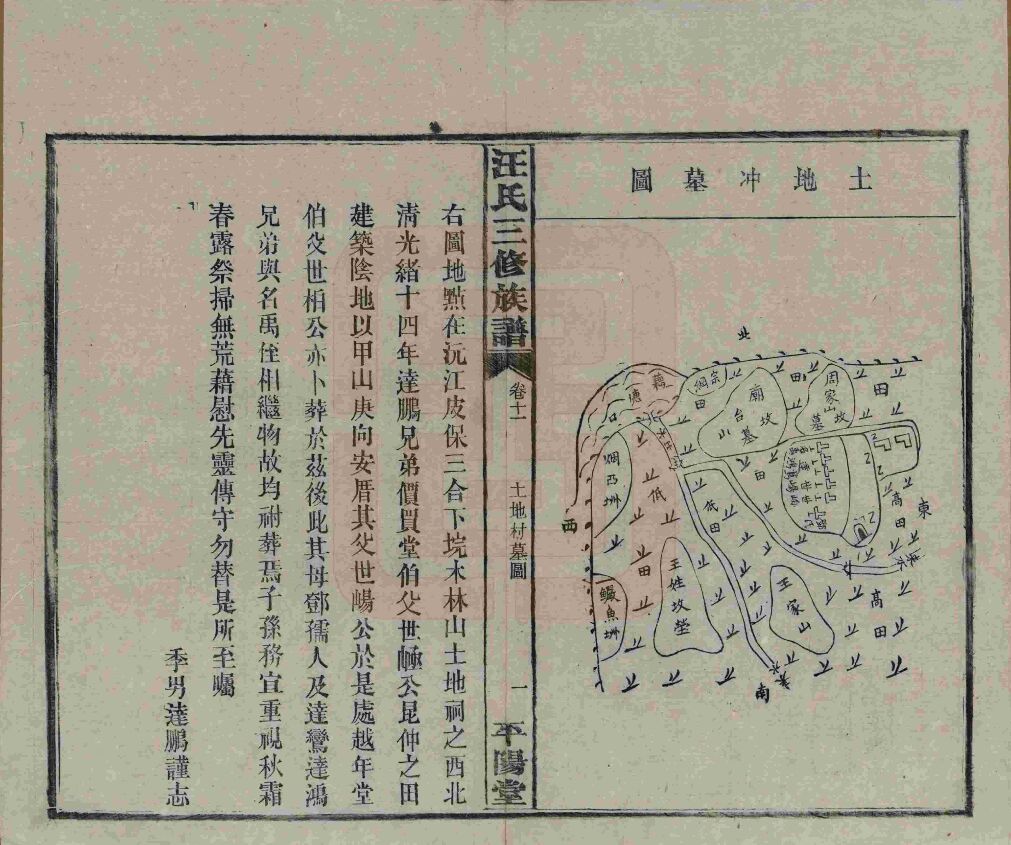 土地冲墓圖
北
東
南
西
藕塘
宗綱田
田
廟坎台墓山
周家山坎墓
田
田
烟匹洲
低田
低田
高田
高田
王姓坟塋
王家山
鳜魚洲
汪氏三修族譜
卷十一
土地村墓圖
一
平陽堂
右圖地㸃在沅江皮保三合下垸木林山土地祠之西北
清光緒十四年達鵬兄弟價買堂伯父世㭁公昆仲之田
建築陰地以甲山庚向安厝其父世暘公於是處越年堂
伯父世相公亦卜葬於茲後此其母鄧孺人及達鸞達鴻
兄弟與名禹侄相繼物故均祔葬焉子孫務宜重視秋霜
春露祭掃無荒藉慰先靈傳守勿替是所至囑
季男達鵬謹志